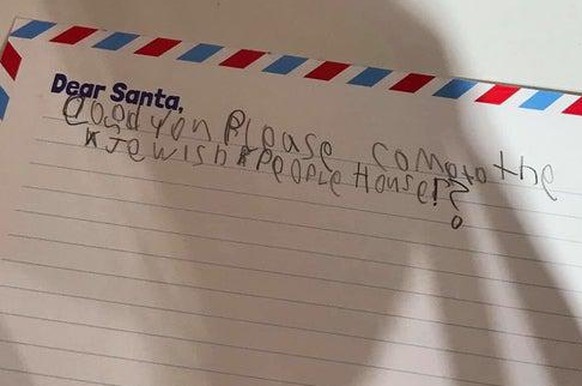 Dear Santa,
Coodyon Please come to the
*Jewish* PeoPLe House!?